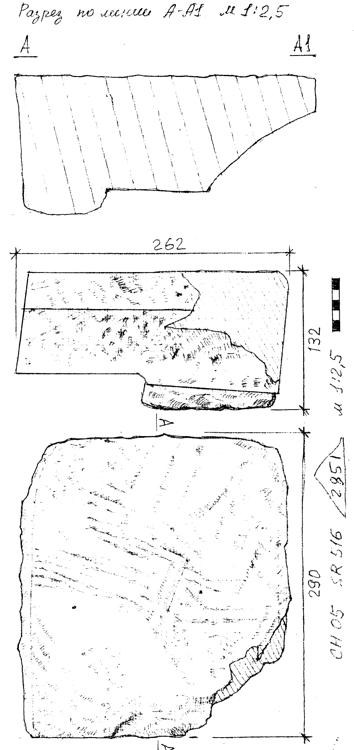 Разрез по линии А-А1 М 1:2,5
А А1
262
132
М 1:2,5
А
290
СН 05 SR S16 295
А